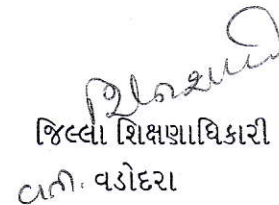 જિલ્લા શિક્ષણાધિકારી
વતી. વડોદરા